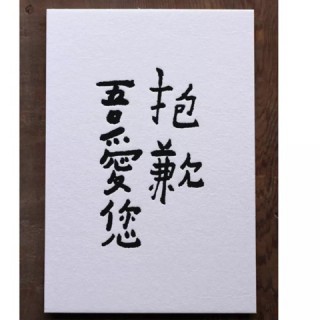 抱歉
吾愛您